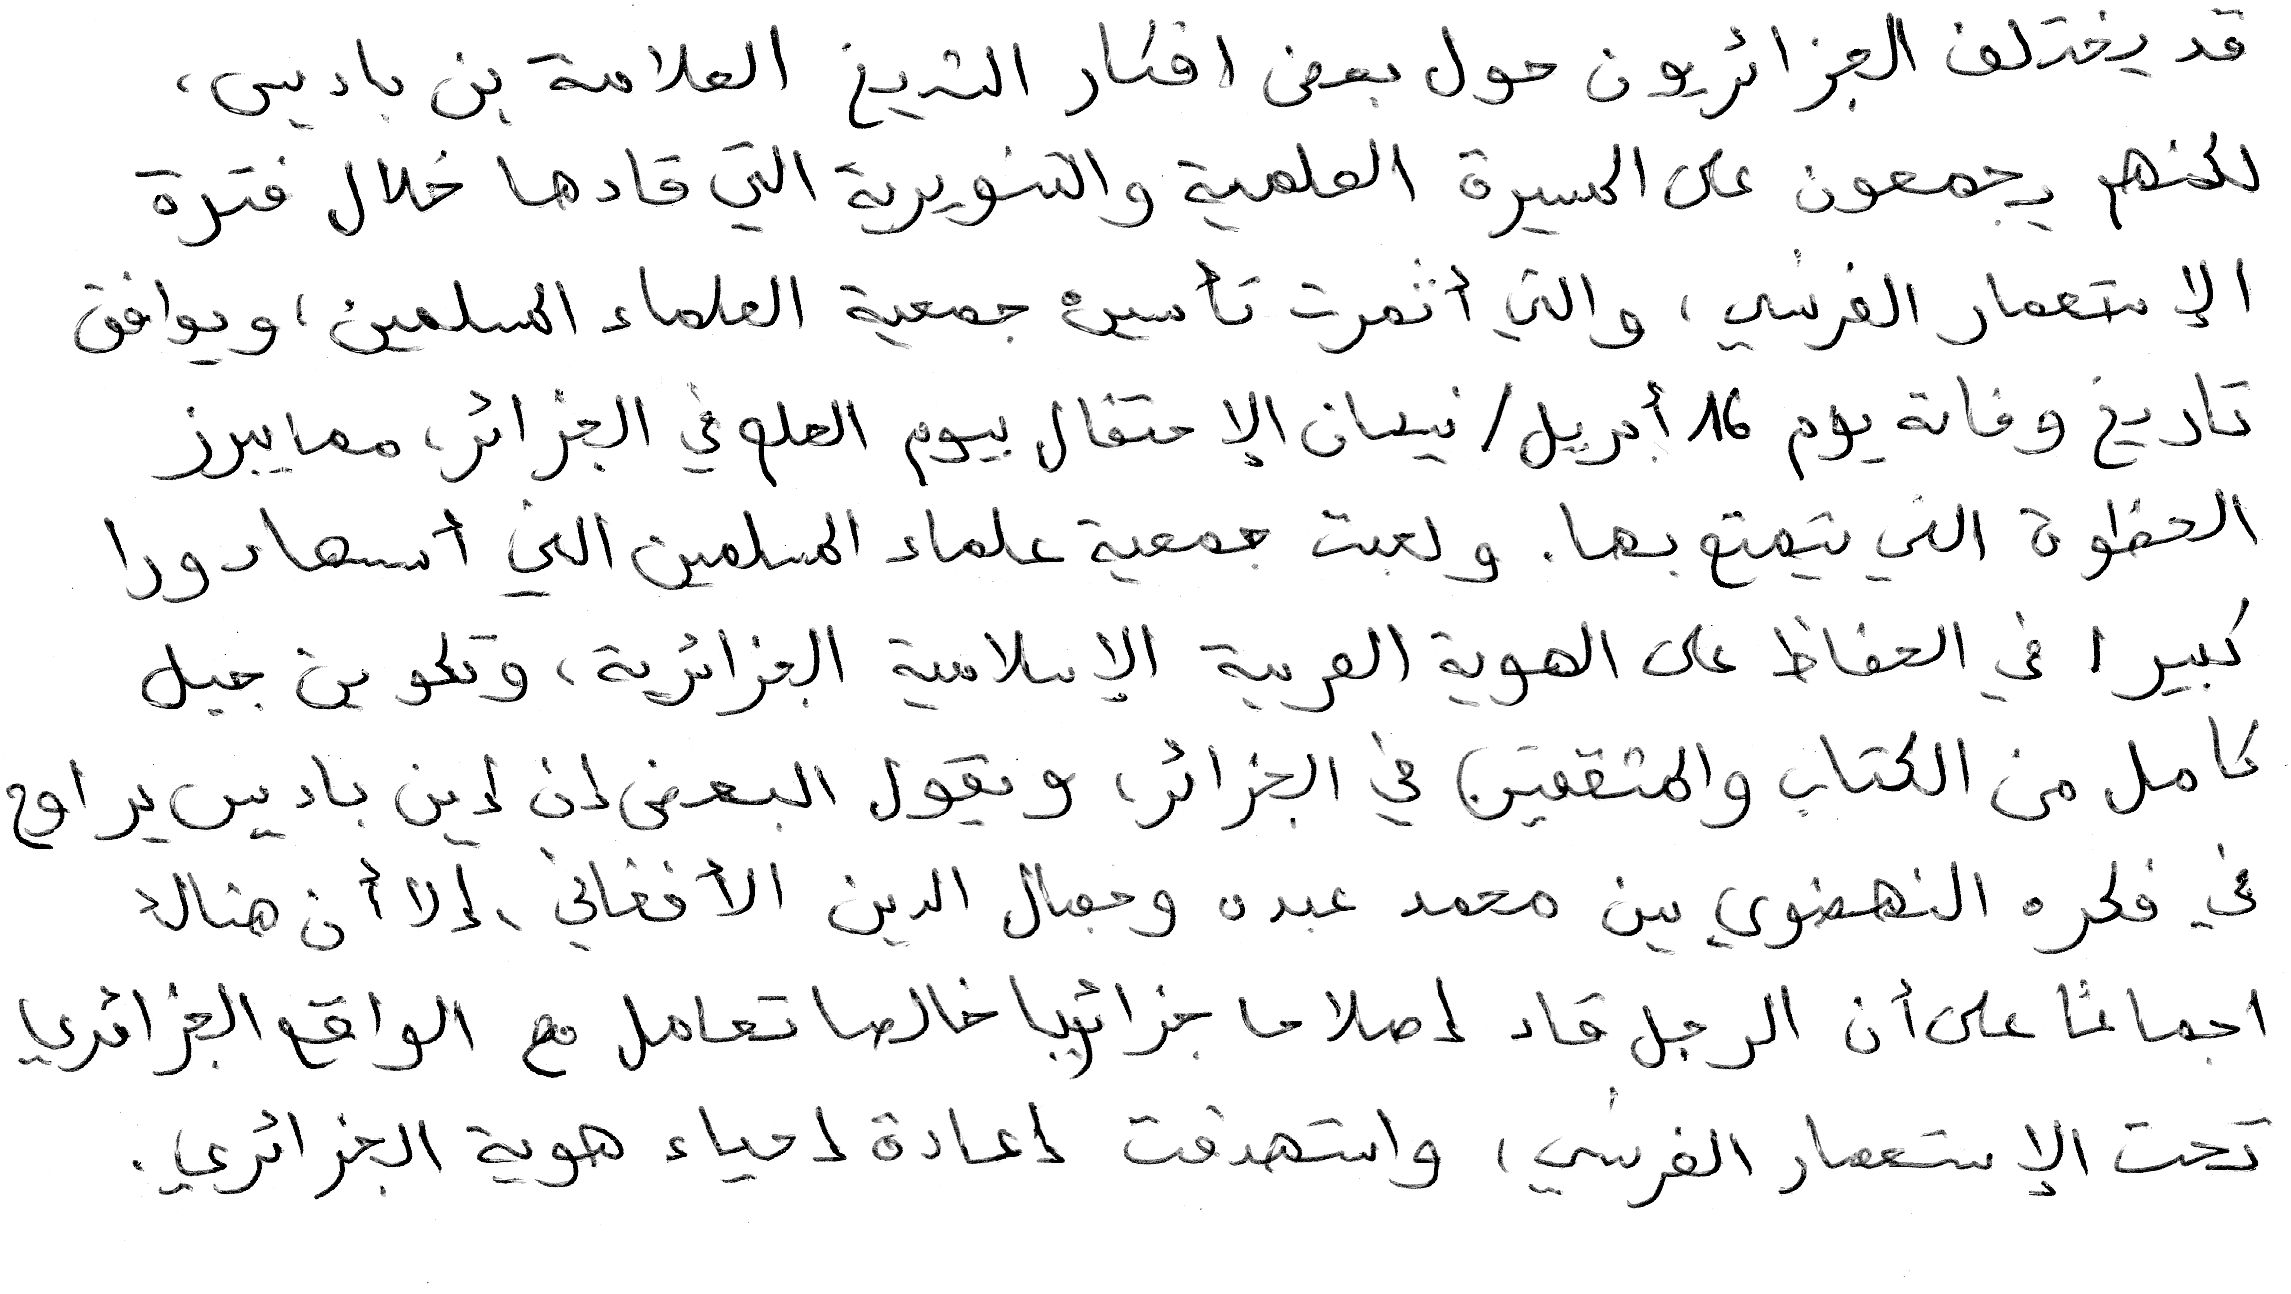 قد يختلف الجزائريون حول بعض افكار الشيخ العلامة بن باديس،
لكنهم يجمعون على المسيرة العلمية والتنويرية التي قادها خلال فترة
الإستعمار الفرنسي، والتي أثمرت تأسيس جمعية العلماء المسلمين، ويوافق
تاريخ وفاته يوم 16 أبريل/نيسان الإحتفال بيوم العلم في الجزائر، مما يبرز
الحظوة التي يتمتع بها. ولعبت جمعية علماء المسلمين التي أسسها دورا
كبيرا في الحفاظ على الهوية العربية الإسلامية الجزائرية، وتكوين جيل
كامل من الكتاب والمثقفين في الجزائر، ويقول البعض إن إبن باديس يراوح
في فكره النهضوي بين محمد عبده وجمال الدين الأفغاني، إلا أن هناك
اجماعًا على أن الرجل قاد إصلاحا جزائريا خالصا تعامل مع الواقع الجزائري
تحت الإستعمار الفرنسي، واستهدفت إعادة إحياء هوية الجزائري.